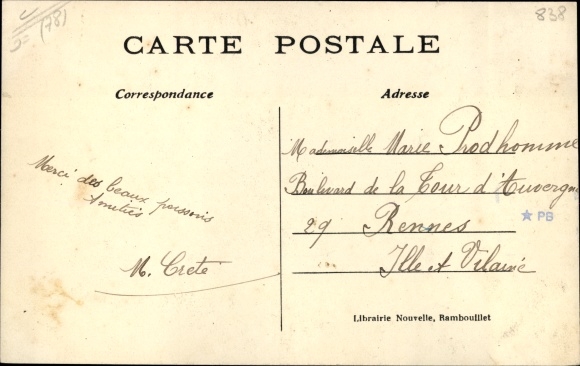 (78)
838
CARTE POSTALE
Correspondance
Adresse
Merci des beaux poissons
Amitiés
M. Creté
Mademoiselle Marie Prodhomme
Boulevard de la Tour d'Auvergne
29 Rennes
Ille et Vilaine
PB
Librairie Nouvelle, Rambouillet